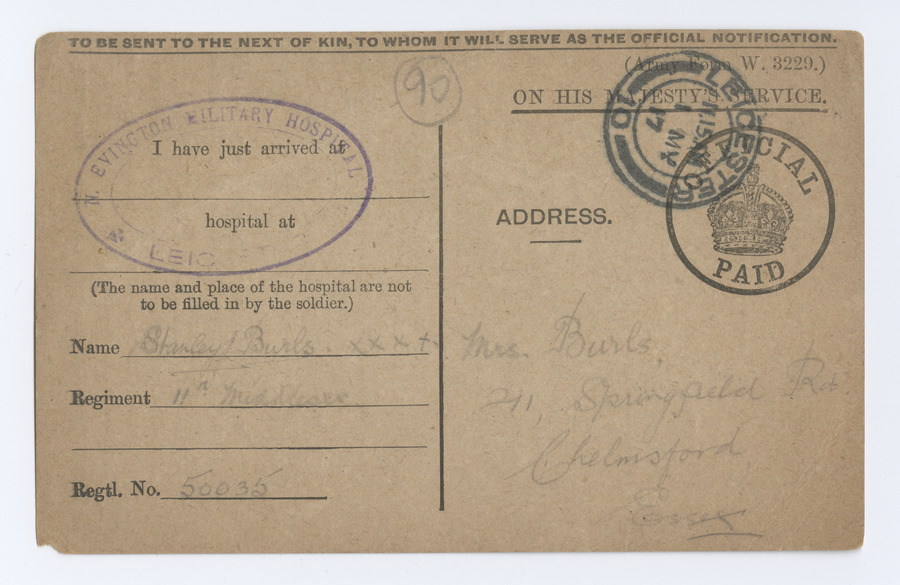 TO BE SENT TO THE NEXT OF KIN, TO WHOM IT WILL SERVE AS THE OFFICIAL NOTIFICATION.
(Army Form W. 3229.)
ON HIS MAJESTY'S SERVICE.
90
LEICESTER
1 MY
17
OFFICIAL
PAID
N. EVINGTON MILITARY HOSPITAL
LEICESTER
I have just arrived at
hospital at
(The name and place of the hospital are not
to be filled in by the soldier.)
Name Stanley Burls. xxxx
Regiment 11th Middlesex
Regtl. No. 50035
ADDRESS.
Mrs. Burls,
Springfield Rd
Chelmsford
Essex